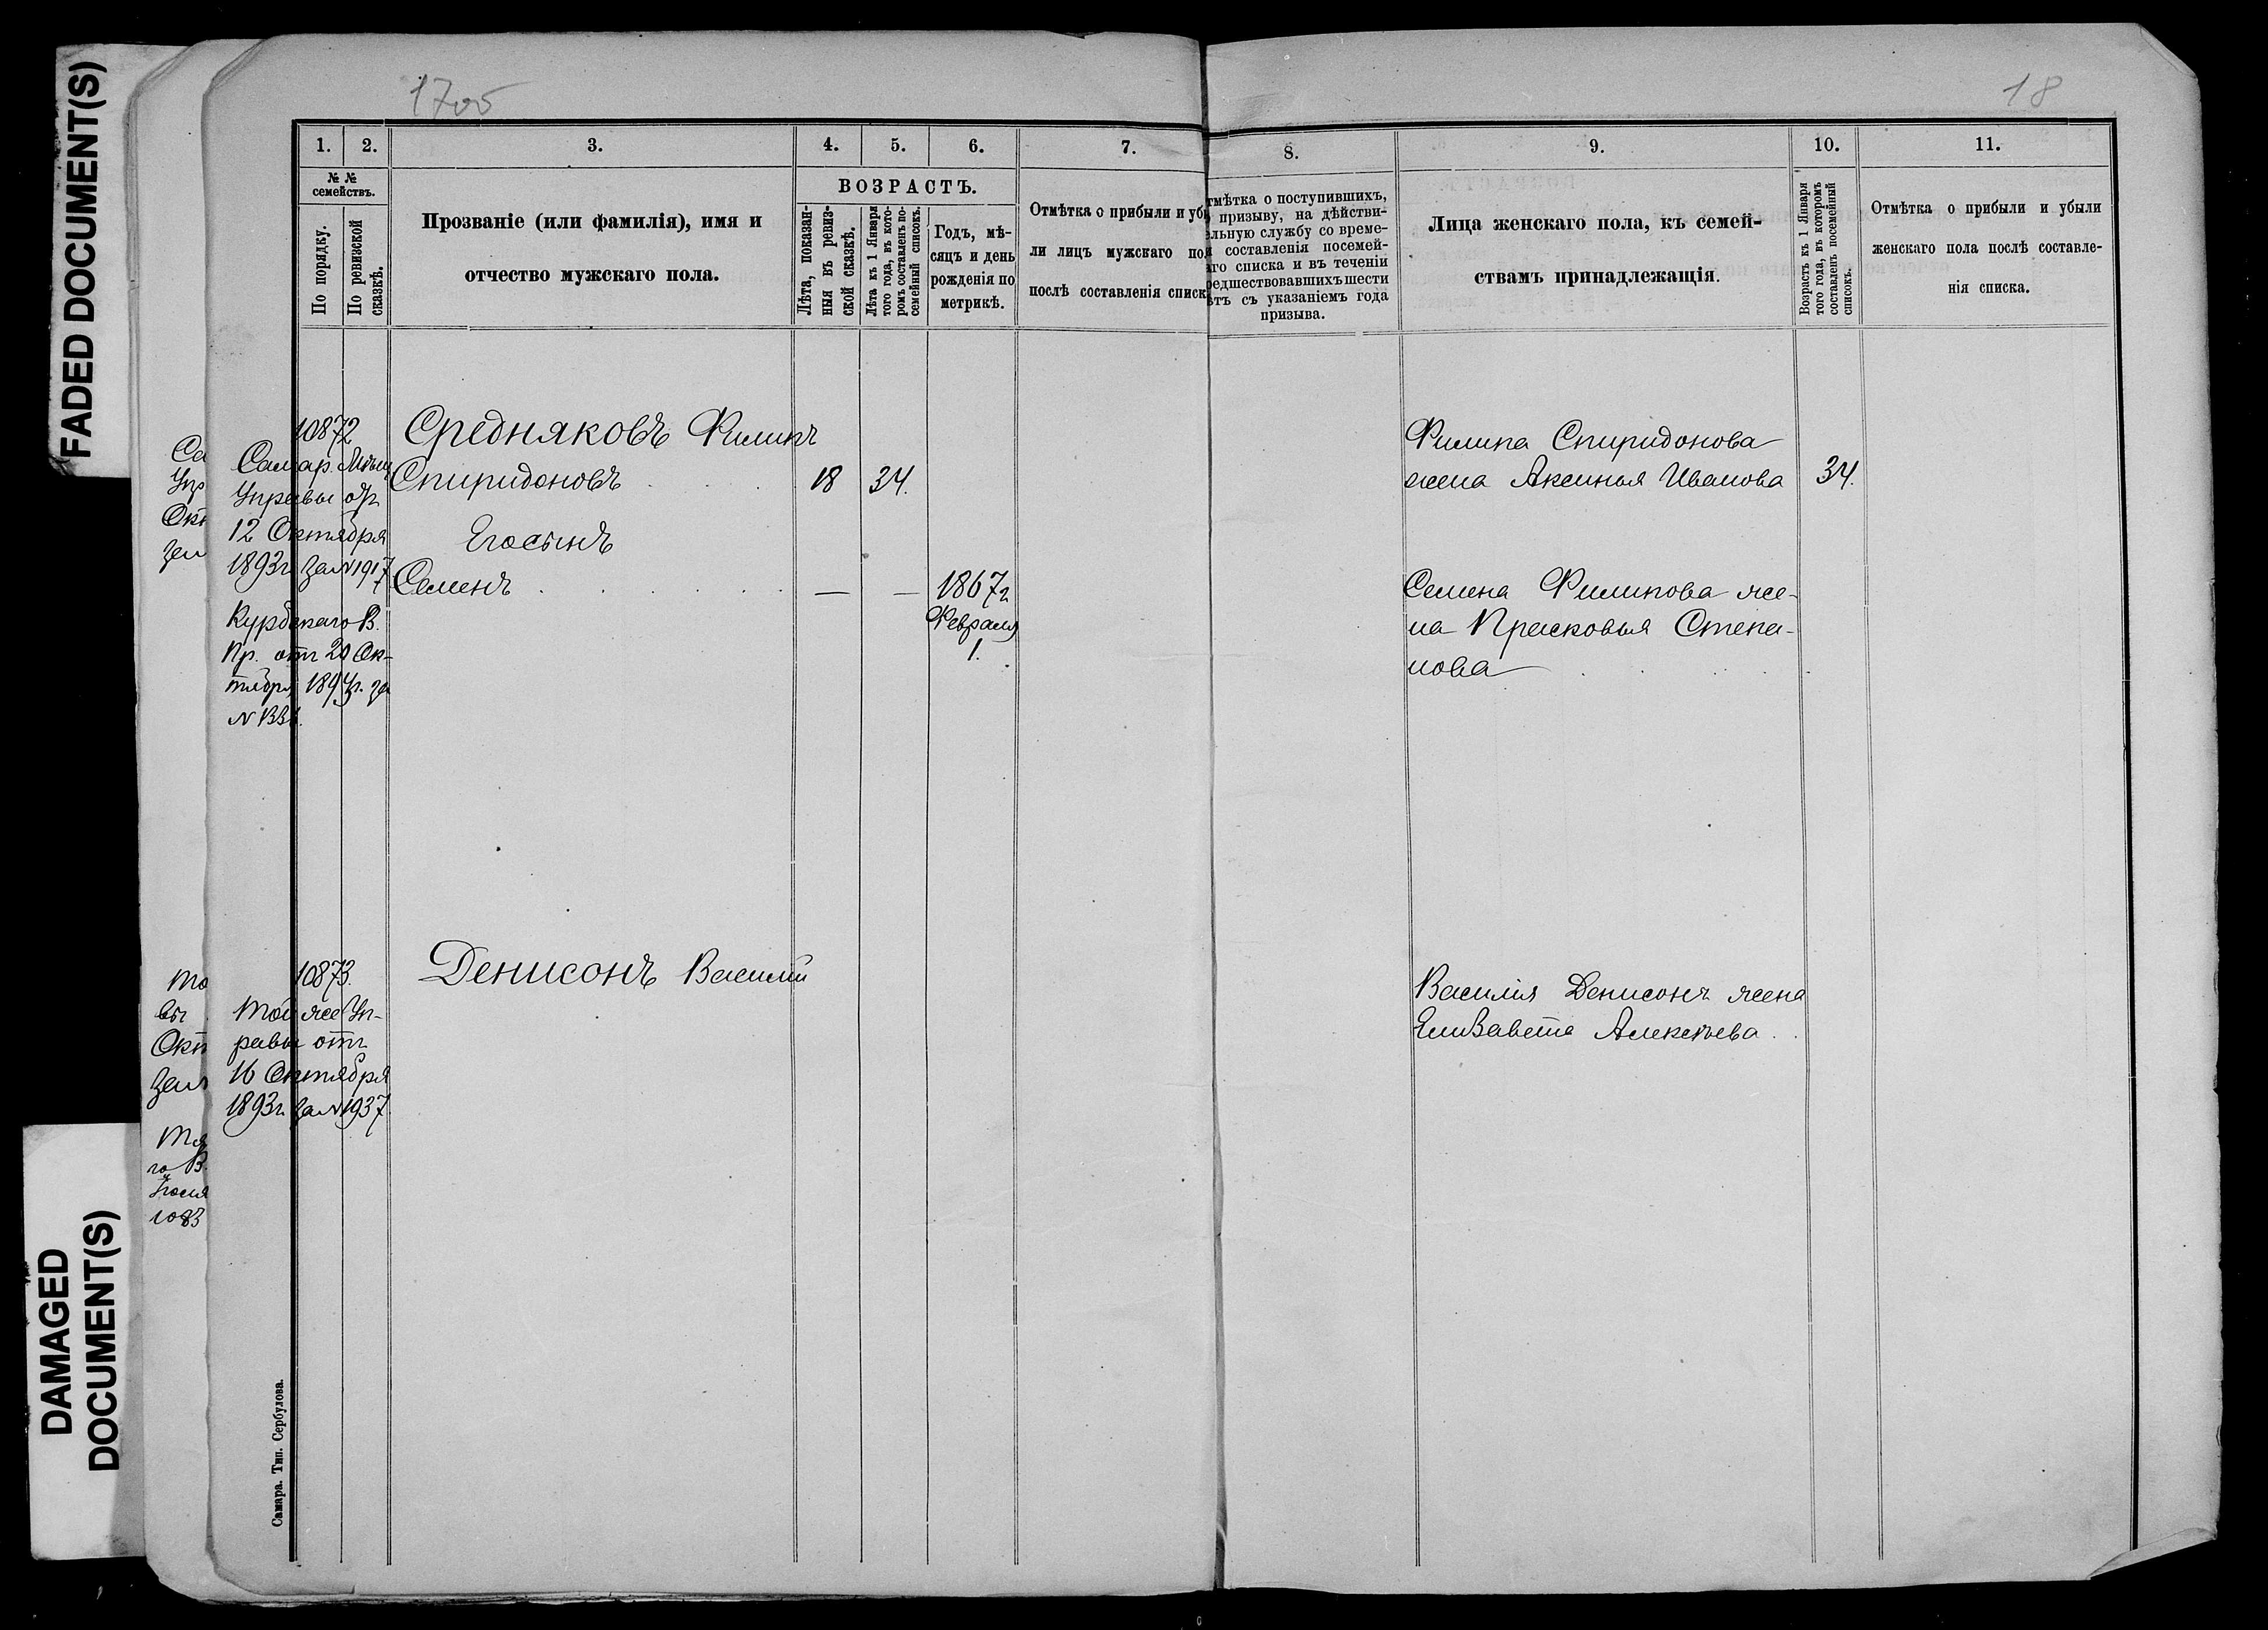 FADED DOCUMENT(S)
DAMAGED
DOCUMENT(S)
18
1.
2.
3.
4.
5.
6.
7.
8.
9.
10.
11.
№ №
семействъ.
По порядку.
По ревизской
сказкѣ.
Прозваніе (или фамилія), имя и
отчество мужскаго пола.
ВОЗРАСТЪ.
Лѣта, показан-
ныя въ ревиз-
ской сказкѣ.
Лѣта къ 1 Января
того года, въ кото-
ромъ составленъ по-
семейный списокъ.
Годъ, мѣ-
сяцъ и день
рожденія по
метрикѣ.
Отмѣтка о прибыли и убы
ли лицъ мужскаго пол
послѣ составленія списк
тмѣтка о поступившихъ,
призыву, на дѣйстви-
ельную службу со време-
составленія посемей-
аго списка и въ теченіи
редшествовавшихъ шести
ѣтъ съ указаніемъ года
призыва.
Лица женскаго пола, къ семей-
ствамъ принадлежащія.
Возрастъ къ 1 Января
того года, въ которомъ
составленъ посемейный
списокъ.
Отмѣтка о прибыли и убыли
женскаго пола послѣ составле-
нія списка.
10872
Самар. Мѣщ
Управы отъ
12 Октября
1893г за №1917
Курдскаго В.
Пр. отъ 20 Ок-
тября 1894г. за
Средняковъ Филипъ
Спиридоновъ 18 34.
Егосынъ
Семенъ — — 1867г
Февраля
1.
Филипа Спиридонова
жена Аксинья Иванова 34.
Семена Филипова же-
на Прасковья Степа-
нова
10873.
Той же Уп-
равы отъ
16 Октября
1893г. за №1937
Денисонъ Василий
Василія Денисонъ жена
Елизавета Алексѣева
Са
Упр
Окт
зем
То
вы
Окт
1083
Самара. Тип. Сербулова.